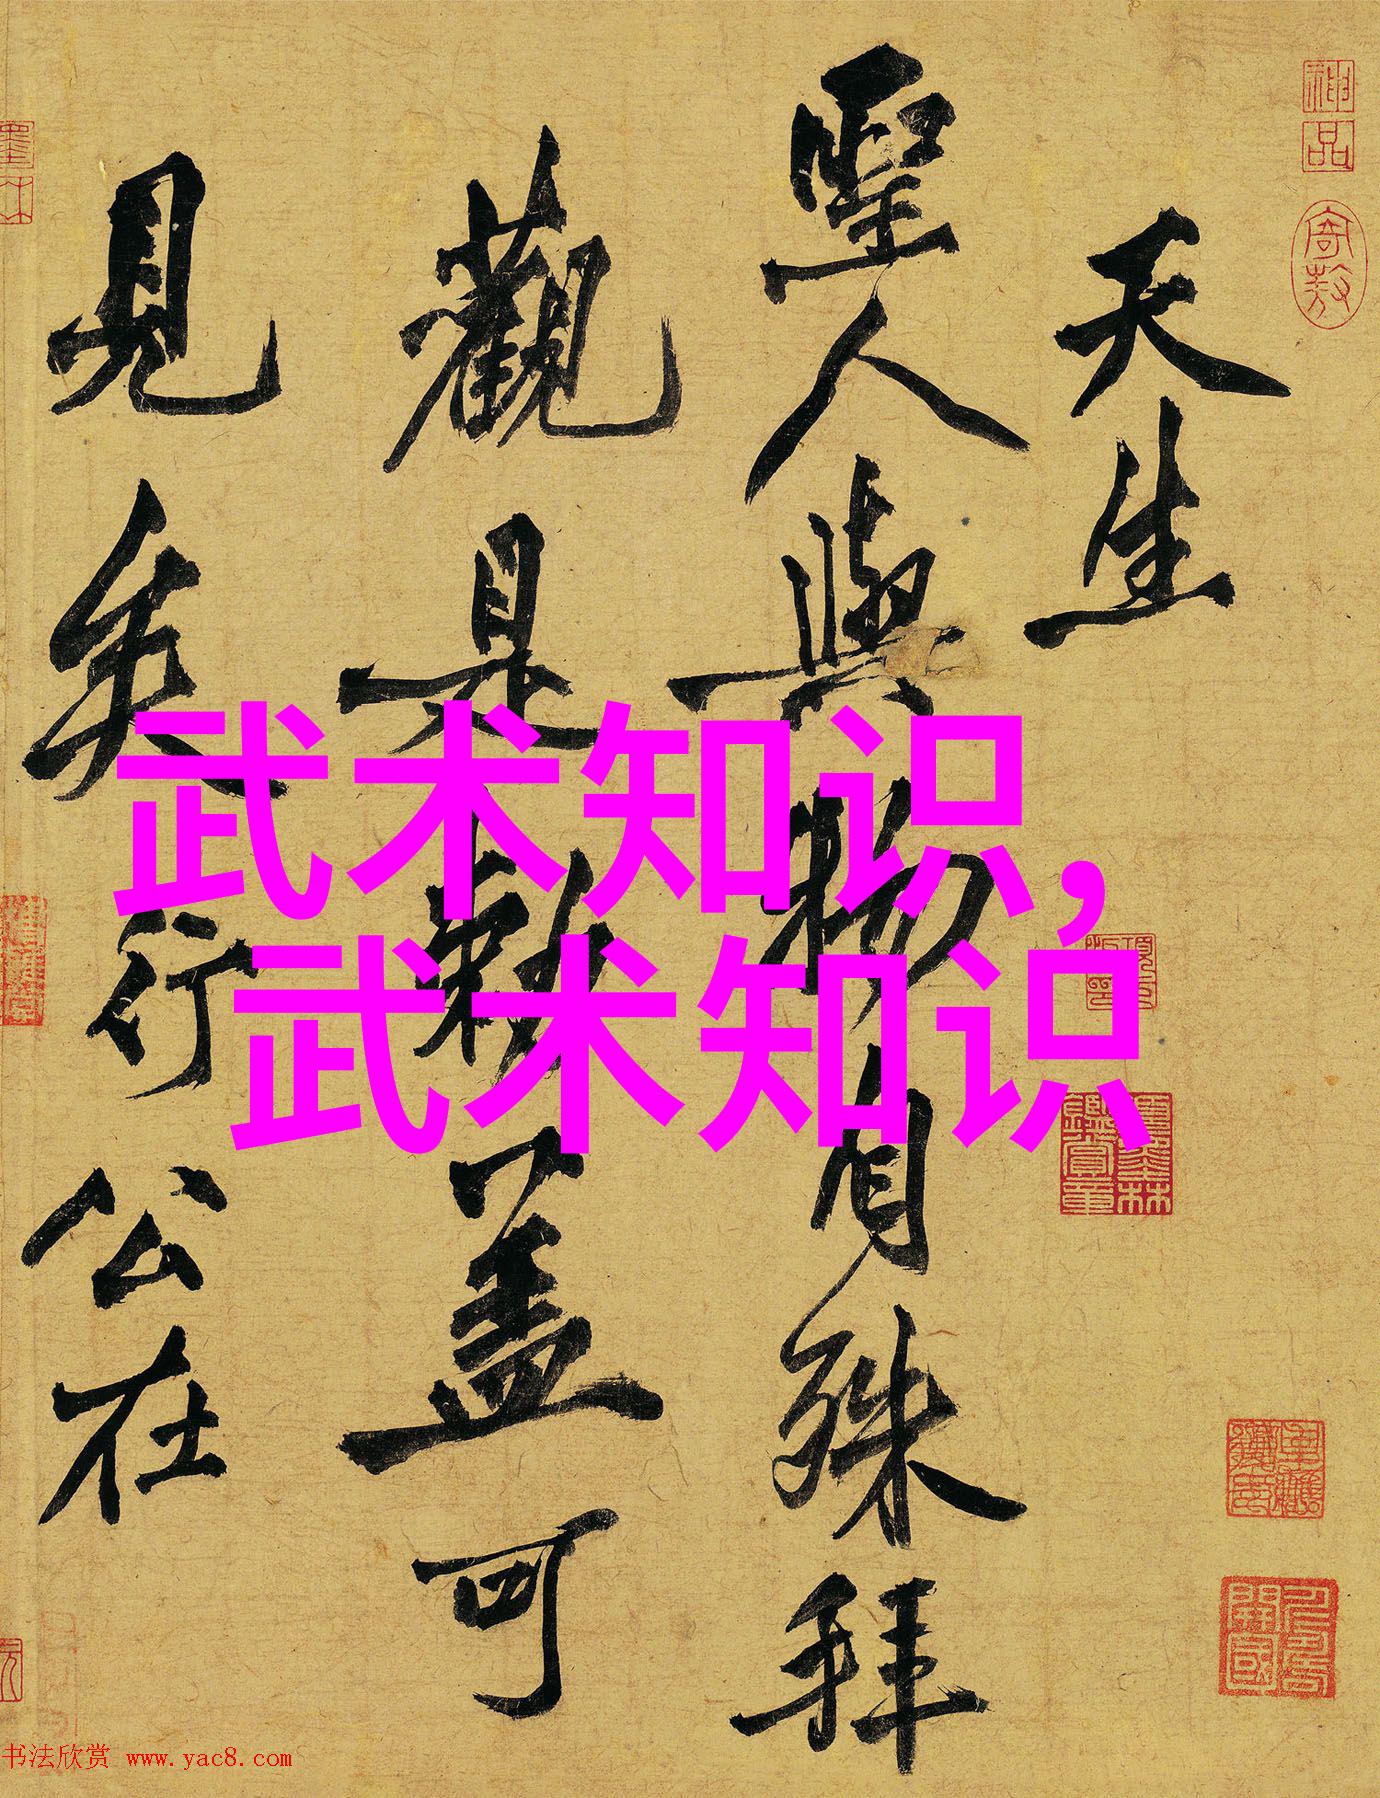 天生
聖人與物自殊拜
觀是敕蓋可
見矣行公在
武术知识,
武术知识
神品
书法欣赏 www.yac8.com